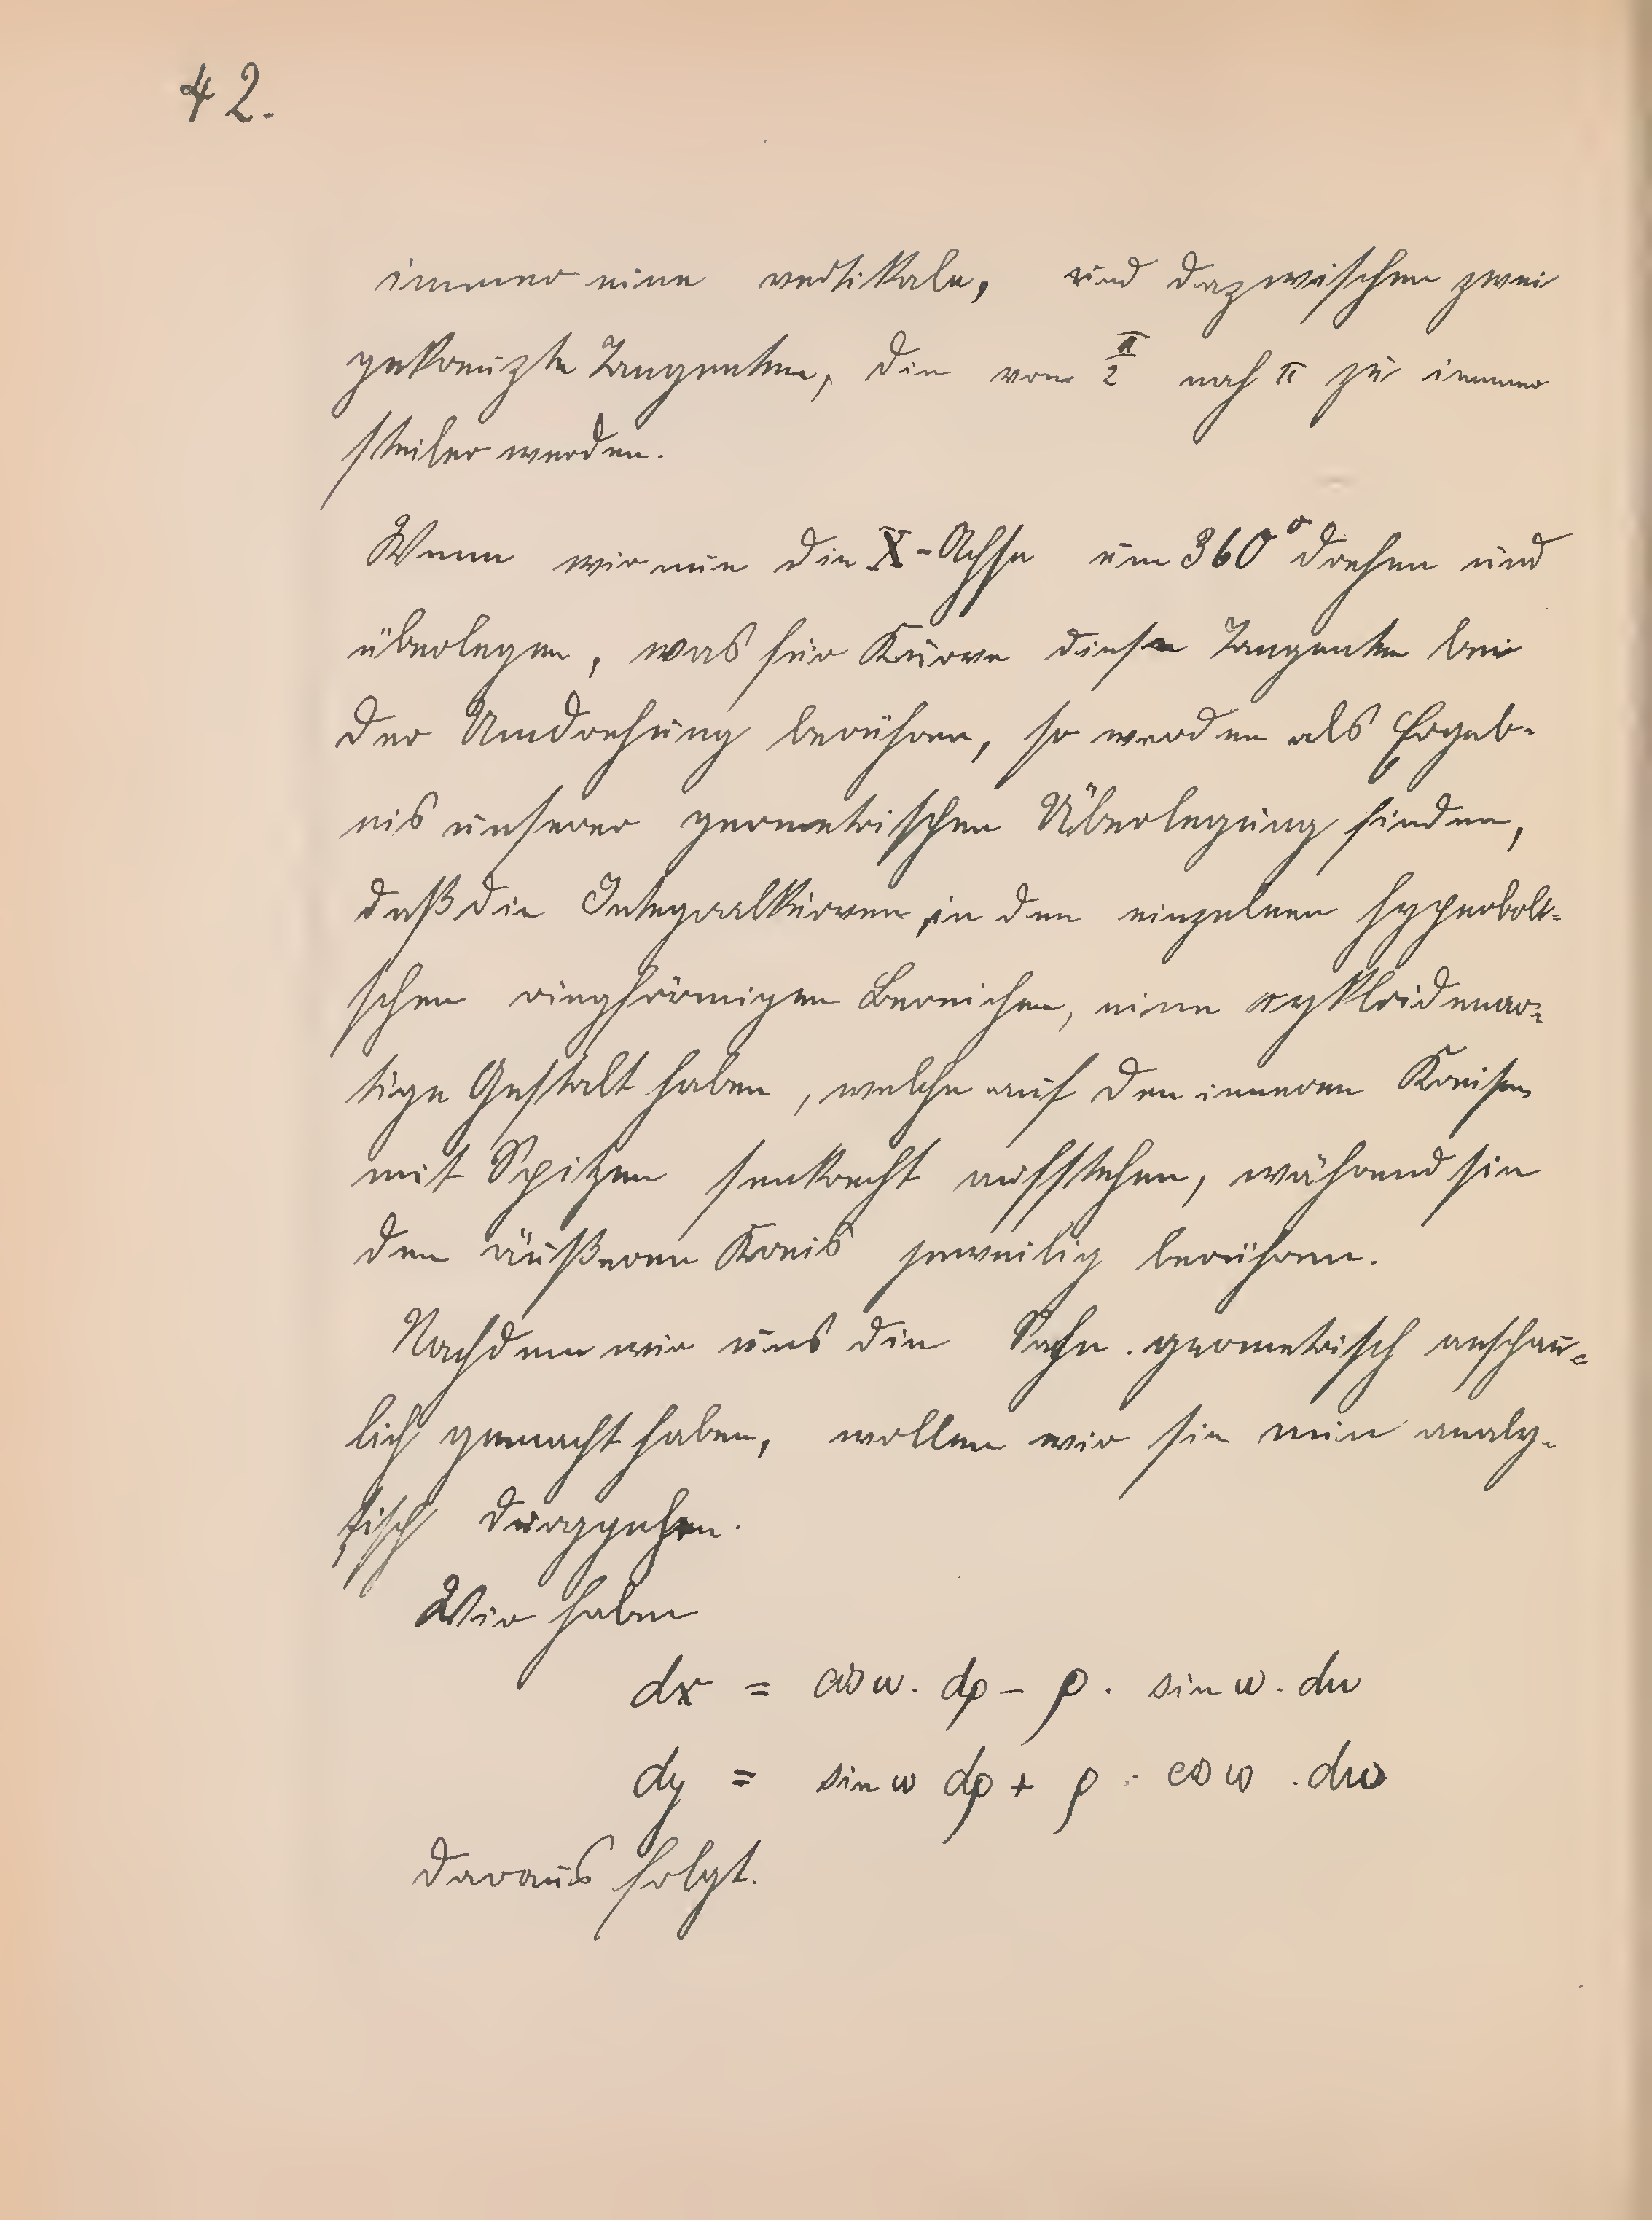 42.
immer eine vertikale, und dazwischen zwei
gekreuzte Tangenten, die von π/2 nach π zu immer
steiler werden.
Wenn wir nun die X-Achse um 360° drehen und
überlegen, was für Kurve diese Tangenten bei
der Umdrehung berühren, so werden als Ergeb-
nis unserer geometrischen Überlegung finden,
daß die Integralkurven in den einzelnen hyperboli-
schen ringförmigen Bereichen, eine zykloidenar-
tige Gestalt haben, welche auf den inneren Kreisen
mit Spitzen senkrecht aufstehen, während sie
den äußeren Kreis jeweilig berühren.
Nachdem wir uns die Sache geometrisch anschau-
lich gemacht haben, wollen wir sie nun analy-
tisch
Wir haben
dx = cos ω. dρ - ρ. sin ω. dω
dy = sin ω dρ + ρ. cos ω. dω
daraus folgt.